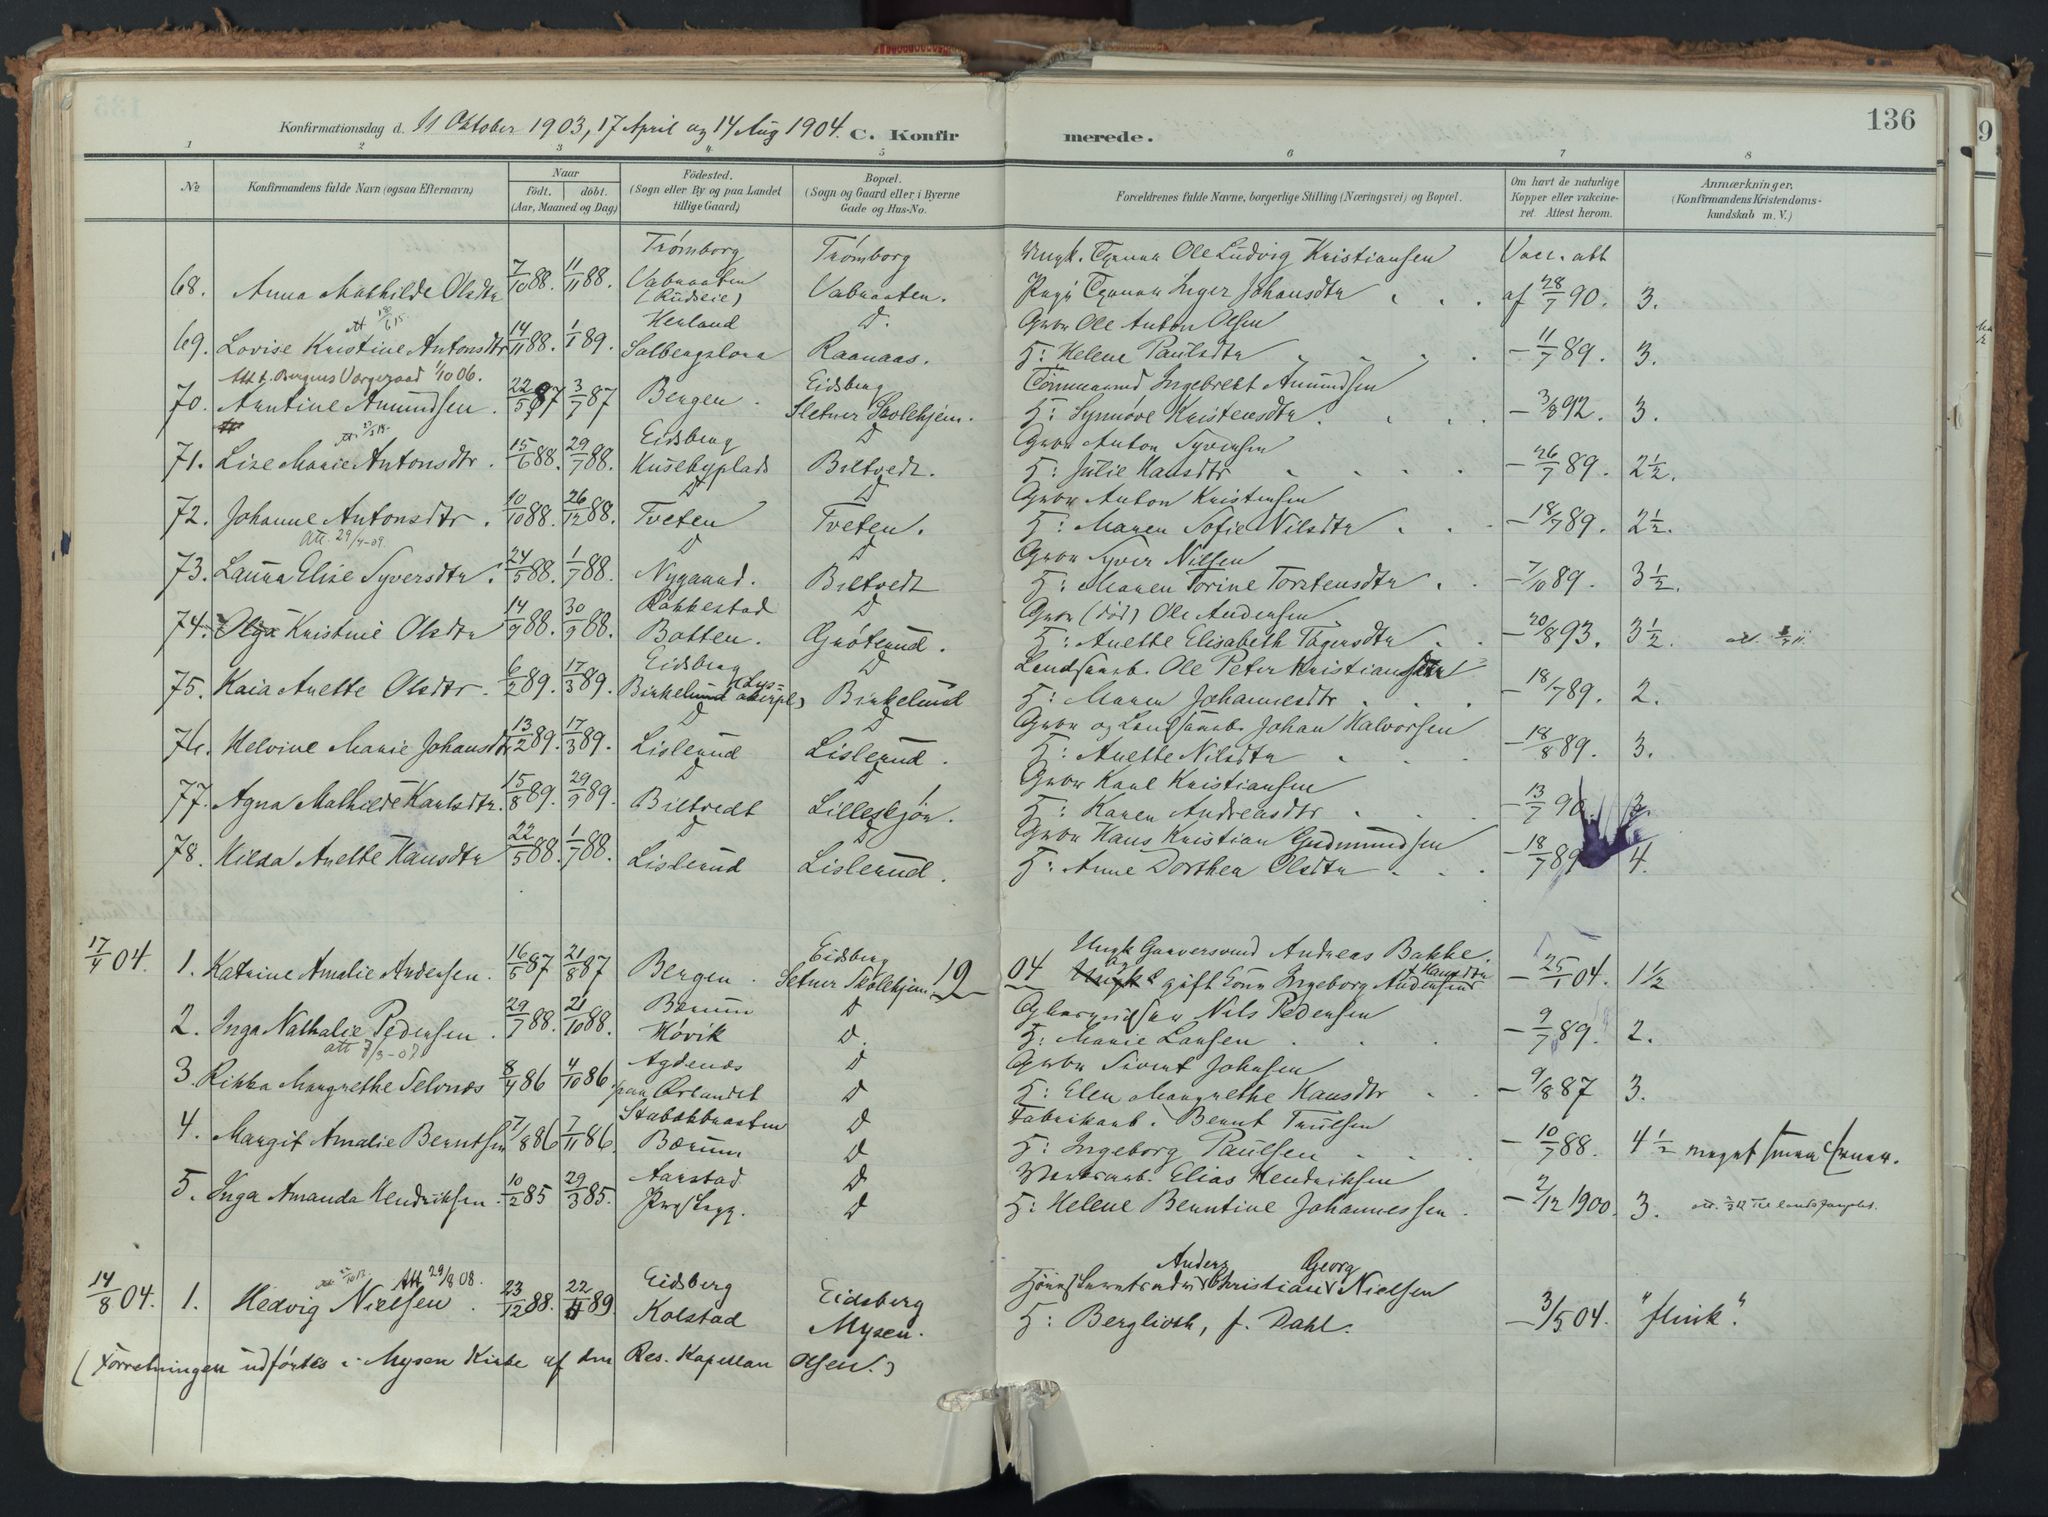 136
Konfirmationsdag d. 11 Oktober 1903, 17 April og 14 Aug 1904. C. Konfirmerede.
1 2 3 4 5 6 7 8
No Konfirmandens fulde Navn (ogsaa Efternavn) Naar født. døbt. (Aar, Maaned og Dag) Fødested. (Sogn eller By og paa Landet tillige Gaard) Bopæl. (Sogn og Gaard eller i Byerne Gade og Hus-No. Forældrenes fulde Navne, borgerlige Stilling (Næringsvei) og Bopæl. Om havt de naturlige Kopper eller vakcineret. Attest herom. Anmærkninger. (Konfirmandens Kristendomskundskab m. V.)
Trømborg Trømborg Ungk. Ole Ludvig Kristiansen Vacc. att
68. Anna Mathilde Olsdtr 7/10 88. 11/11 88. Vabraaten (Rudseie) Vabraaten. Pige Inger Johansdtr af 28/7 90. 3.
Herland D. Gbr Ole Anton Olsen
69. Lovise Kristine Antonsdtr 14/11 88. 1/1 89. Solbergslora Raanaas. H: Helene Paulsdtr - 11/7 89. 3.
Att f. Bergens Vergeraad 1/10 06. Eidsberg Ingebrekt Amundsen
70. Antine Amundsen. 22/5 87 3/7 87 Bergen. Sletner Skolehjem. H: Synnøve Kristensdtr. - 3/8 92. 3.
Eidsberg D Gbr Anton Syversen
71. Lise Marie Antonsdtr. 15/6 88. 29/7 88. Kusebyplads Biltvedt. H: Julie Hansdtr - 26/7 89. 2½.
D D Gbr Anton Kristensen
72. Johanne Antonsdtr. 10/10 88. 26/12 88. Tveten Tveten. H: Maren Sofie Nilsdtr - 18/7 89. 2½.
Att. 29/4-09. D D Gbr Syver Nilsen
73. Laura Elise Syversdtr. 24/5 88. 1/7 88. Nygaard. Biltvedt H: Maren Torine Torstensdtr. - 7/10 89. 3½.
Rakkestad D Gbr (død) Ole Andersen
74. Olga Kristine Olsdtr 14/9 88. 30/9 88. Botten. Grøterud. H: Anette Elisabeth - 20/8 93. 3½.
Eidsberg D Ole Peter Kristiansen
75. Kaia Anette Olsdtr. 6/2 89. 17/3 89. Birkelund Birkelund H: Maren Johannesdtr - 18/7 89. 2.
D D Gbr og Johan Halvorsen
76. Helvine Marie Johansdtr 13/2 89. 17/3 89. Lislerud Lislerud. H: Anette Nilsdtr - 18/8 89. 3.
D D Gbr Karl Kristiansen
77. Agna Mathilde Karlsdtr. 15/8 89. 29/9 89. Biltvedt Lilleskjøn. H: Karen Andreasdtr - 13/7 90. 3.
D D Gbr Hans Kristian Gudmundsen
78. Hilda Anette Hansdtr 22/5 88. 1/7 88. Lislerud Lislerud. H: Anne Dorthea Olsdtr - 18/7 89 4.
Eidsberg Ungk Andreas Bakke.
17/4 04. 1. Katrine Amalie Andersen. 16/5 87 21/8 87 Bergen. Setner Skolehjem. 1904 og gift Ingeborg Andersen Hansdtr - 25/1 04. 1½
Bærum D Nils Pedersen
2. Inga Nathalie Pedersen. 29/7 88. 21/10 88. Høvik D. H: Marie Larsen - 9/7 89. 2.
Att 7/3-07 Agdenes D Gbr Sivert Johnsen
3. Rikka Margrethe Selvnæs 8/4 86 4/10 86. paa Ørlandet D H: Elen Margrethe Hansdtr - 9/8 87 3.
Stabækbraaten D Fabrikarb. Bernt Trulsen
4. Margit Amalie Berntsen 7/8 86 7/11 86. Bærum D H: Ingeborg Paulsen - 10/7 88. 4½ meget
Aarstad D Elias Hendriksen
5. Inga Amanda Hendriksen. 10/2 85 29/3 85. D H: Helene Berntine Johannessen. - 2/12 1900. 3.
Att 29/8 08. Eidsberg Anders Georg
14/8 04. 1. Hedvig Nielsen. 23/12 88. 22/4 89 Kolstad Eidsberg Christian Nielsen
Mysen. H: Berglioth, f. Dahl. - 3/5 04. "flink".
(Forretningen udførtes i Mysen Kirke af den Res. Kapellan Olsen.)